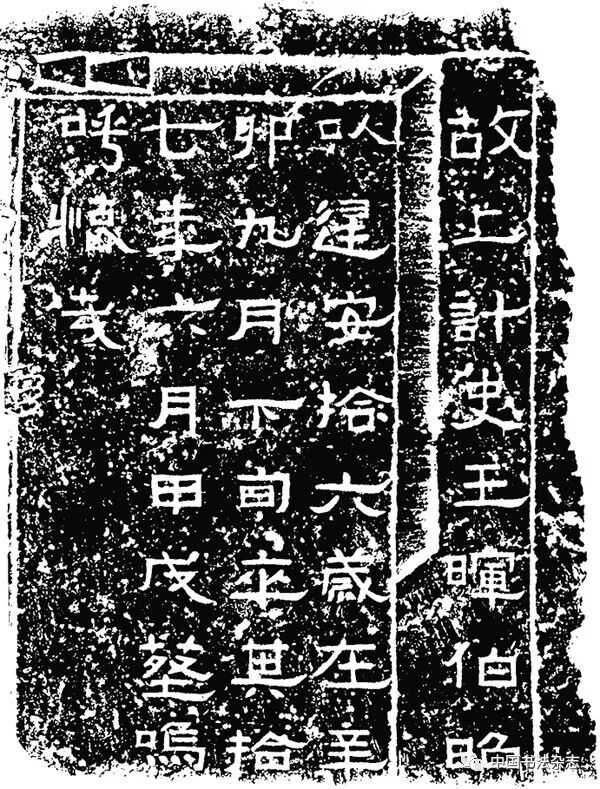 故上計史王暉伯昭
以建安拾六歲在辛
卯九月下旬卒其拾
七年六月甲戌葬嗚
呼哉
中国书法杂志